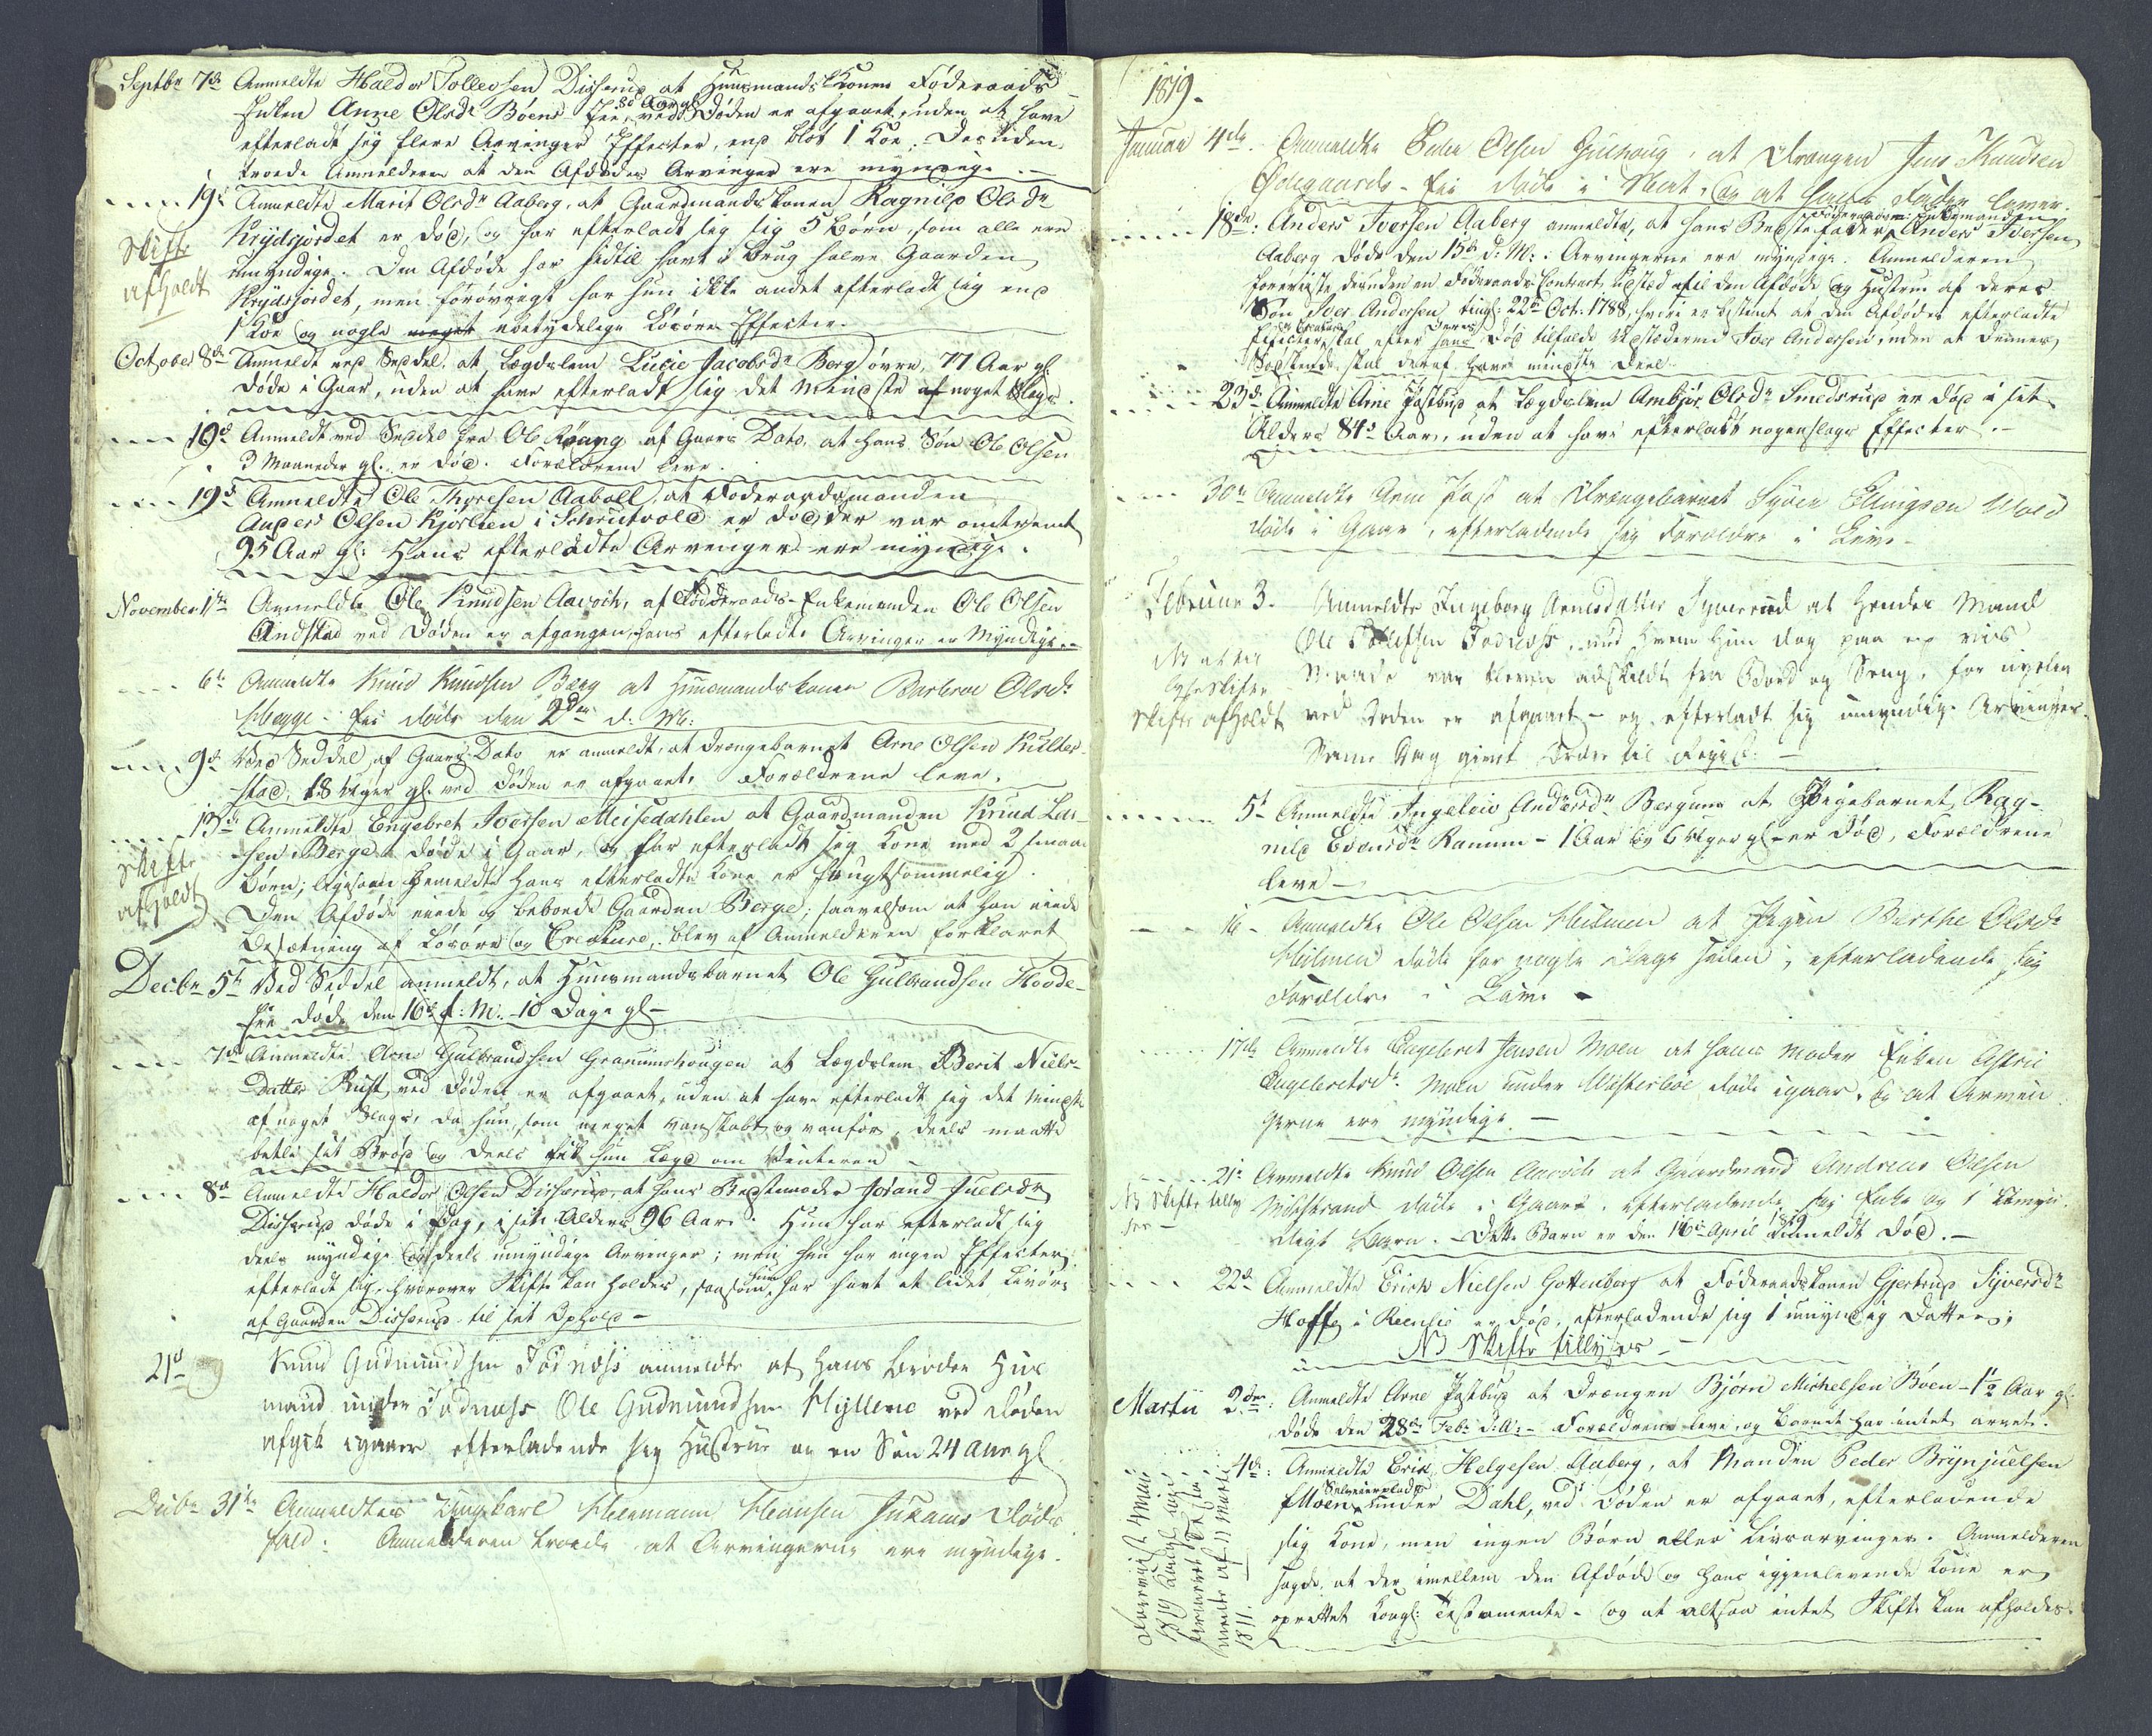 Septbr 7de Anmeldte Haldor Tollevsen Disserud at Huusmandskonen Føderaads-
Enken Anne Olsdr Bøens Eie, 80 Aar gl. ved Døden er afgaaet, uden at have
efterladt sig flere Arvinger Effecter, end blot 1 Koe. Desuden
troede Anmelderen at den Afdødes Arvinger ere myndige.
19de Anmeldte Marit Olsdr Aaberg, at Gaardmandskonen Ragnild Olsdr
Krydsjordet er død, og har efterladt sig sig 5 Børn, som alle ere
umyndige. Den Afdøde har hidtil havt i Brug halve Gaarden
Krydsjordet, men forøvrigt har hun ikke andet efterladt sig end
1 Koe og nogle meget ubetydelige Løsøre Effecter.
Skifte
afholdt
October 8de Anmeldt ved Seddel, at Lægdslem Lucie Jacobsdr Berg øvre, 77 Aar gl.
døde i Gaar, uden at have efterladt sig det Mindste af noget Slags.
10de Anmeldt ved Seddel fra Ole Røang af Gaars Dato, at hans Søn Ole Olsen
3 Maaneder gl. er død. Forældrene leve.
19de Anmeldte Ole Thoresen Aaboll, at Føderaadsmanden
Anders Olsen Kjørlien i Schrutvold er død, der var omtrent
95 Aar gl: Hans efterladte Arvinger ere myndige.
November 1ste Anmeldte Ole Knudsen Aavoch, at Fødderaads-Enkemanden Ole Olsen
Andstad ved Døden er afgangen, hans efterladte Arvinger er Myndige.
6te Anmeldte Knud Knudsen Berg at Huusmandskonen Barbroe Olsdr
Hegge-Eie døde den 2den d: M:
9de Ved Seddel af Gaars Dato er anmeldt, at Drengebarnet Arne Olsen Kulter-
stad, 18 Uger gl. ved Døden er afgaaet. Forældrene leve.
13de Anmeldte Engebret Iversen Meisedahlen at Gaardmanden Knud Lar-
sen Berge døde i Gaar, og har efterladt sig Kone med 2 smaa
Børn; ligesaa hans efterladte Kone er frugtsommelig.
Den Afdøde eiede og beboede Gaarden Berge; saavelsom at han eiede
Besætning af Løsøre og Creature, blev af Anmelderen forklaret
Skifte
afholdt
Decbr 5te Ved Seddel anmeldt, at Huusmandsbarnet Ole Gulbrandsen Hovde-
Eie døde den 16de f: M: 10 Dage gl.
7de Anmeldte Arne Gulbrandsen Granumshougen at Lægdslem Berit Niels-
Datter Rust, ved Døden er afgaaet, uden at have efterladt sig det mindste
af noget Slags, da hun, som meget vanskabt og vanfør, deels maatte
betle sit Brød og deels fik hun Lægd om Vinteren
8de Anmeldte Haldor Olsen Disserud, at hans Bestemoder Jorand Juelsdr
Disserud døde i Dag, i sit Alders 96 Aar. Hun har efterladt sig
deels myndige og deels umyndige Arvinger; men hun har ingen Effecter
efterladt sig, hvorover Skifte kan holdes, saasom hun har havt et lidet Livøre
af Gaarden Disserud til sit Ophold
21de Knud Gudmundsen Fødness anmeldte at hans Broder Huus
mand under Fødness Ole Gudmundsen Hylleric ved Døden
afgik igaar efterladende sig Hustrue og en Søn 24 aar gl
Decbr 31te Anmeldtes Ungkarl Hermann Hansen Døds
fald: Anmelderen troede at Arvingerne ere myndige.
1819.
Januar 4de. Anmeldte Peder Olsen Gulhaug, at Drengen Jens Knudsen
Ødegaards-Eie døde i Nat, og at hans Fader lever.
18de: Anders Iversen Aaberg anmeldte, at hans Bestefader, Føderaads-Enkemanden Anders Iversen
Aaberg døde den 15de d: M: Arvingerne ere myndige. Anmelderen
foreviste desuden en Føderaads-Contract, udsted til den Afdøde og Hustrue af deres
Søn Iver Andersen tingl: 22de Oct: 1788, hvori er bestemt at den Afdødes efterladte
Effecter og Creature skal efter hans deres Død tilfalde Udstederen Iver Andersen, uden at dennes
Sødskende skal deraf have mindste Deel.
23de Anmeldte Arne Fostbud at Lægdslem Ambjør Olsdr Smedsrud er død i sit
Alders 84de Aar, uden at have efterladt nogenslags Effecter.
30te Anmeldte Arne Post at Drengebarnet Syver Ellingsen Wold
døde i Gaar, efterladende sig Forældre i Live.
Februar 3. Anmeldte Ingeborg Arnesdatter Syverrud at hendes Mand
Ole Fødness, med hvem hun dog paa en vis
Maade var adskildt fra Bord og Seng, for nyelig
ved Døden er afgaaet - og efterladt sig umyndige Arvinger.
Samme Dag givet Ordre til
Skifte afholdt
5te Anmeldte Ingeleiv Andersdr Bergum at Pigebarnet Rag-
nild Evensdr Ranum - 1 Aar og 6 Uger gl. er død, Forældrene
leve
16 - Anmeldte Ole Olsen Heilmen at Pigen Barthe Olsdr
Heilmen døde for nogle Dage siden, efterladende sig
Forældre i Live
17de Anmeldte Engebret Jensen Moen at hans Moder Enken Astric
Engebretsdr. Moen under Wisterboe døde igaar, og at Arvin
gerne ere myndige.
21de Anmeldte Knud Olsen Aavoch at Gaardmand Andreas Olsen
Midstrand døde i Gaar, efterladende sig Enke og 1 Umyn
digt Barn. - Dette Barn er den 16de April 1819 anmeldt død.
NB Skifte tilly
ses
22de Anmeldte Erich Nielsen Gottenborg at Føderaadskonen Gjertrud Syversdr
Hoffs i Reensie er død, efterladende sig 1 umyndig Datter;
NB Skifte tillyses
Martii 2den: Anmeldte Arne Fostbud at Drengen Bjørn Michelsen Bøen - 1½ Aar gl.
døde den 28de Febr: d:A: - Forældrene leve, og Barnet har intet arvet.
4de: Anmeldte Erik Helgesen Aaberg, at Manden Peder Brynjuelsen
Moen Selveierplads under Dahl, ved Døden er afgaaet, efterladende
sig Kone, men ingen Børn eller Livsarvinger. Anmelderen
sagde, at der imellem den Afdøde og hans igjenlevende Kone er
oprettet Kongl: Testamente - og at altsaa intet Skifte kan afholdes.
Foreviist 1 Maii
1819 Kongl.
Testa
mente af 11 Marti
1811.